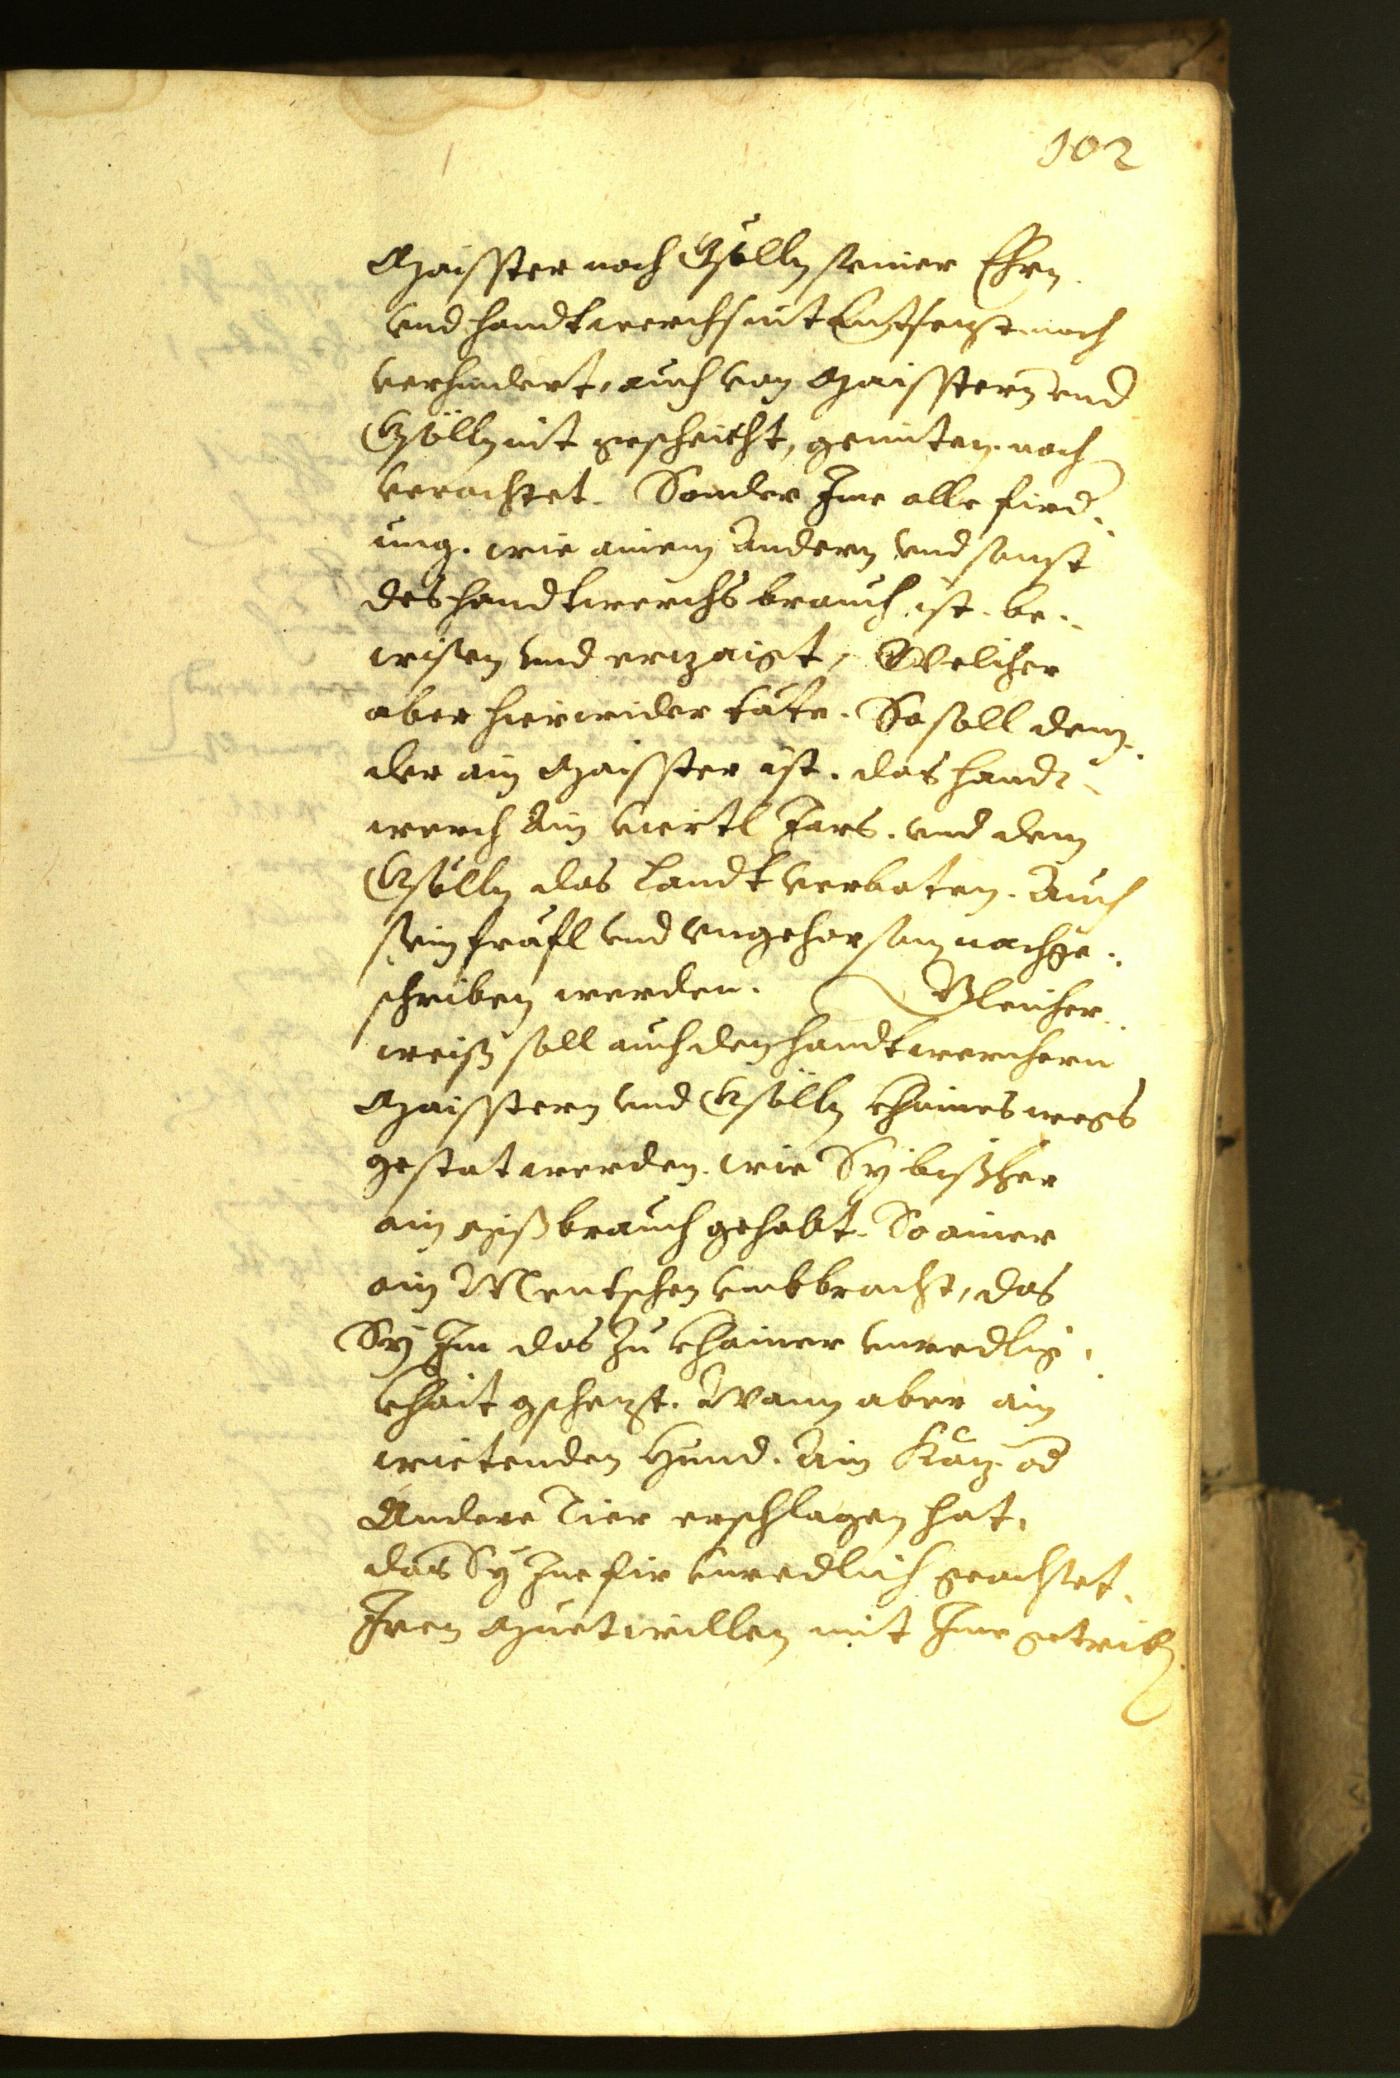 102
Maisster noch Gsölln seiner Ehrn
und handtwerchs nit Entsezt noch
verhindert, auch von Maisstern und
Gsölln nit gescheicht, gemiten noch
verachtet. Sonder Ime alle fird¬
ung. wie ainem Andern und sonst
des handtwerchs brauch ist. be¬
wisen und erzaigt, Welicher
aber hierwider täte. So soll dem
der ain Maisster ist. das handt
werch Ain viertl Jars. und dem
Gsölln das Landt verboten. Auch
sein fräfl und ungehorsam nachge¬
schriben werden. Gleicher
weiß soll auch den handtwerchern
Maisstern und Gsölln khaines wegs
gestat werden. wie Sy bißher
ain mißbrauch gehabt. So ainer
ain Mentschen umbbracht, das
Sy Im das zu khainer unredlig¬
khait gschezt. Wann aber ain
wietenden Hund. Ain Kaz od
Andere Tier erschlagen hat,
das Sy Ine fir unredlich geachtet.
Iren Muetwillen mit Ime getribn